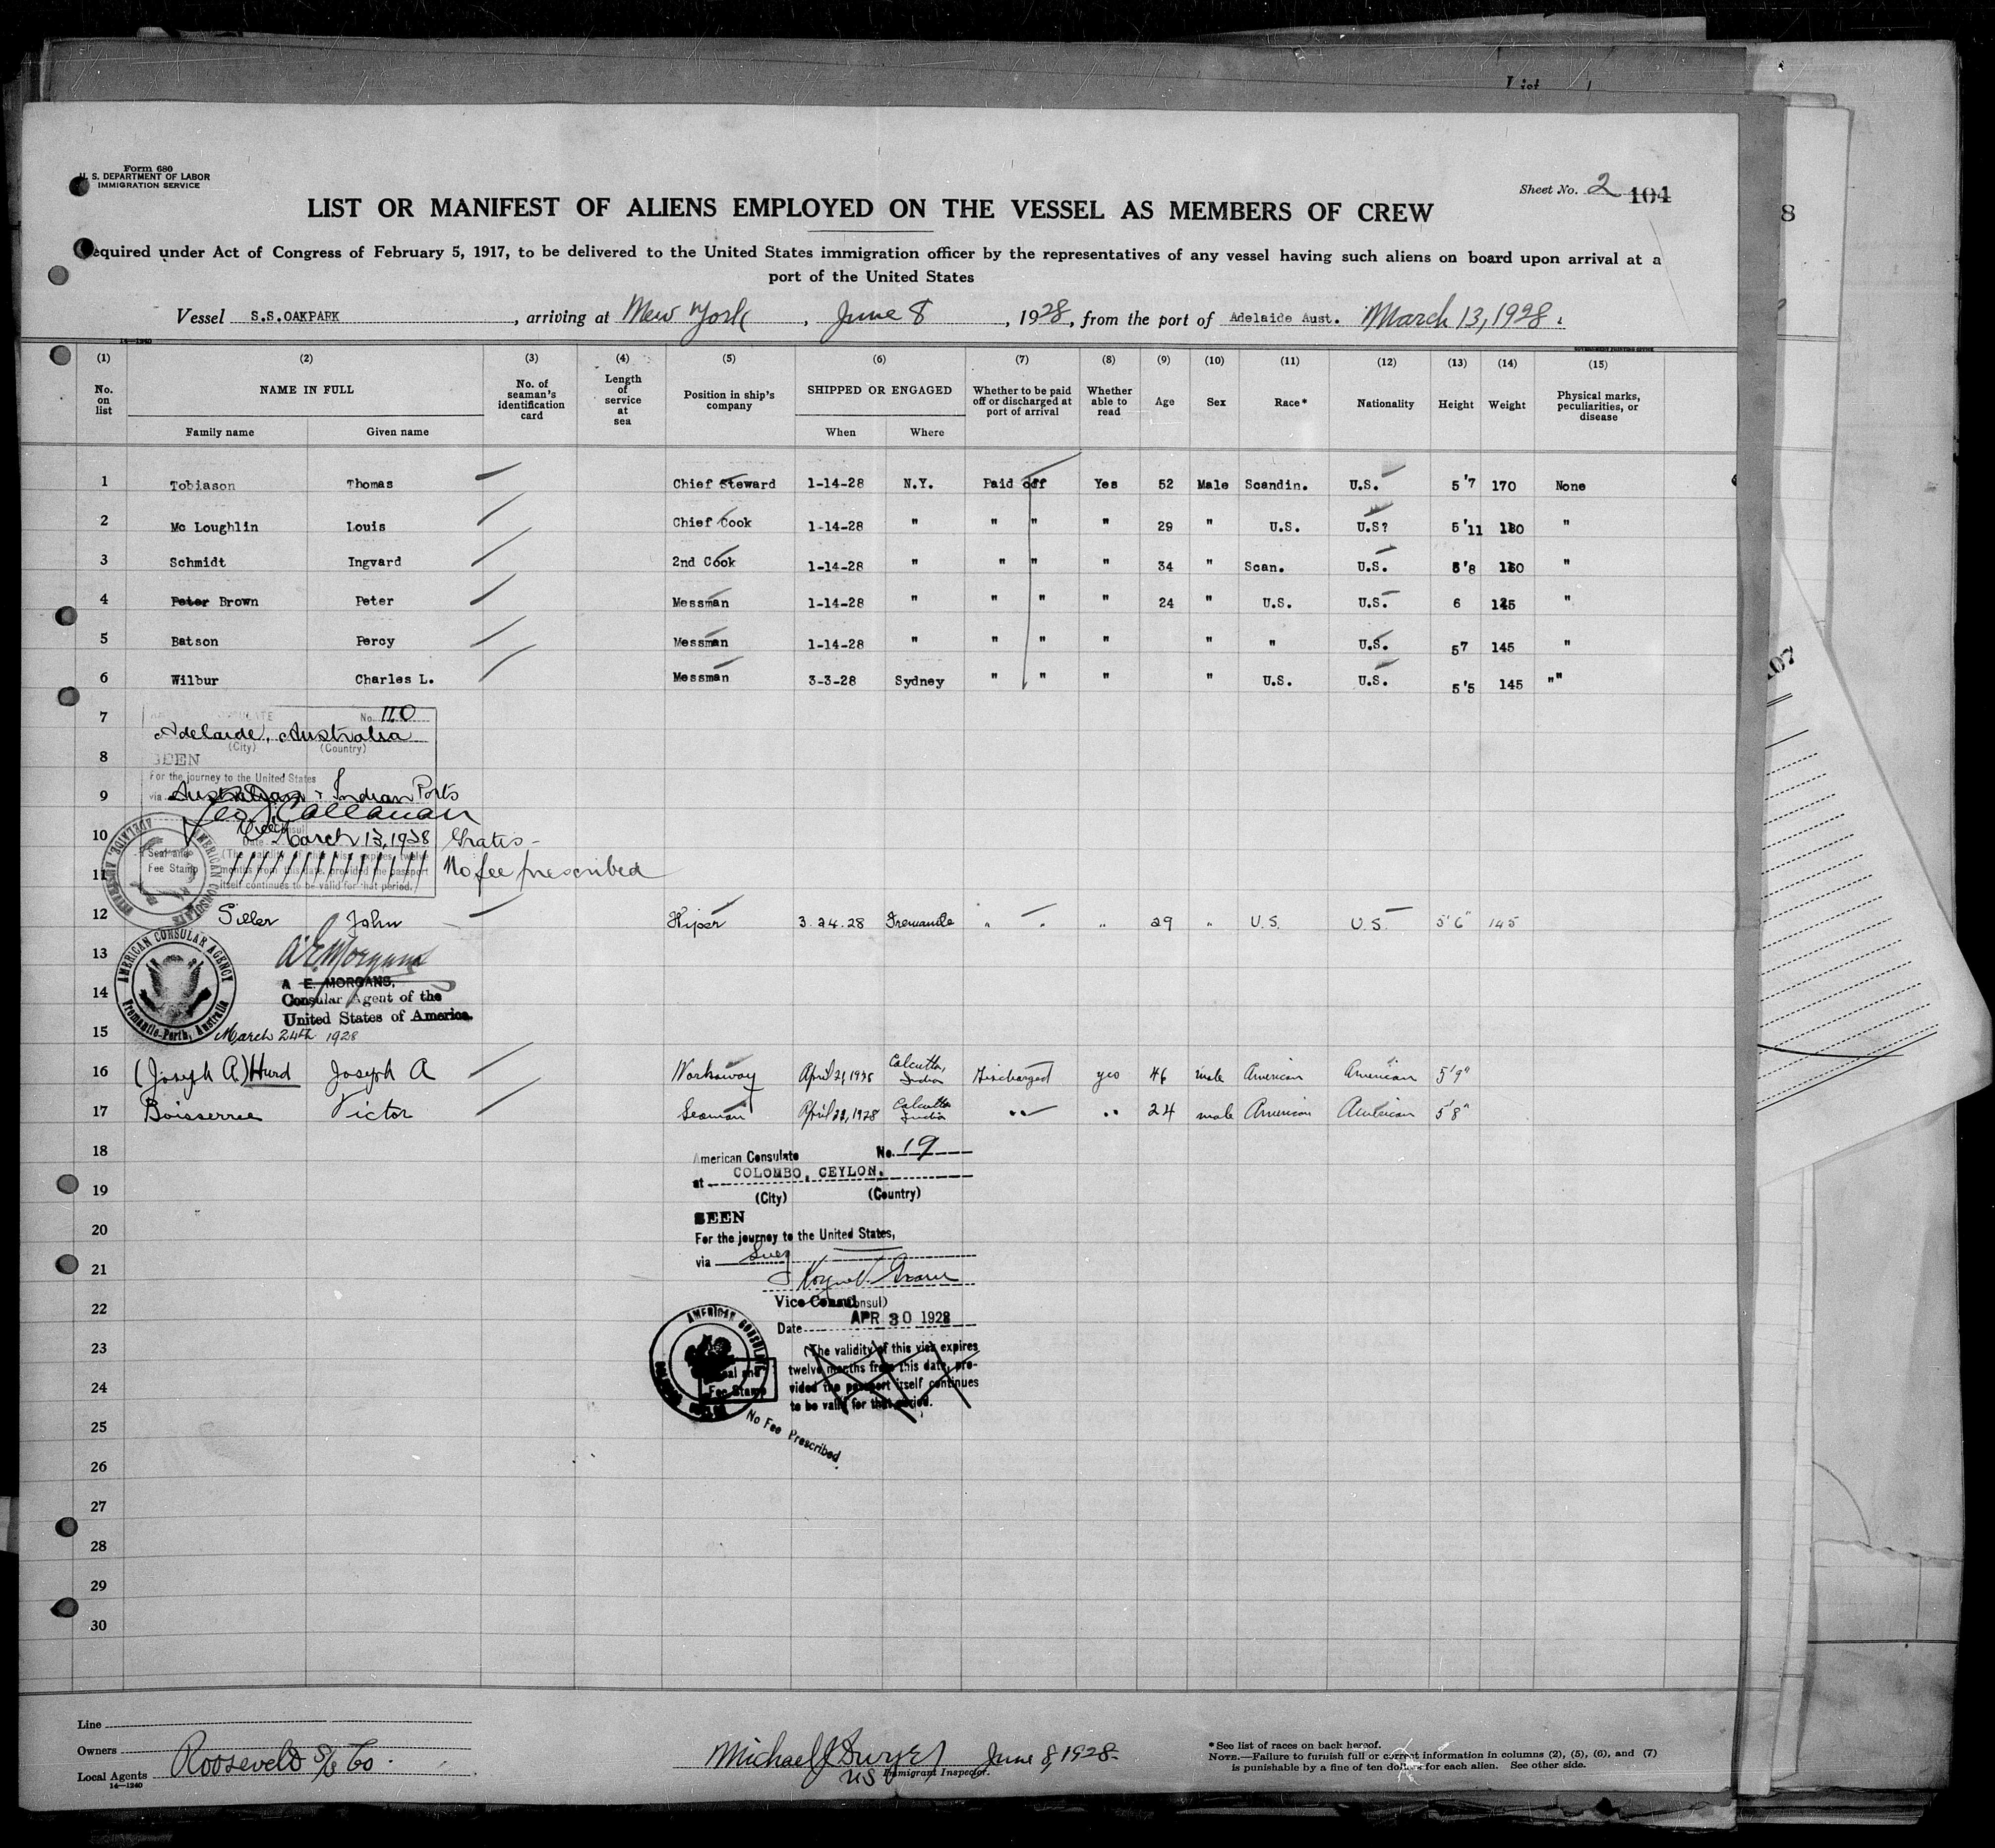 List
Form 680
U. S. DEPARTMENT OF LABOR
IMMIGRATION SERVICE
Sheet No. 2 104
LIST OR MANIFEST OF ALIENS EMPLOYED ON THE VESSEL AS MEMBERS OF CREW
equired under Act of Congress of February 5, 1917, to be delivered to the United States immigration officer by the representatives of any vessel having such aliens on board upon arrival at a
port of the United States
Vessel S.S.OAKPARK, arriving at New York, June 8, 1928, from the port of Adelaide Aust. March 13, 1928.
14—1240
(1) (2) (3) (4) (5) (6) (7) (8) (9) (10) (11) (12) (13) (14) (15)
No. on list NAME IN FULL No. of seaman's identification card Length of service at sea Position in ship's company SHIPPED OR ENGAGED Whether to be paid off or discharged at port of arrival Whether able to read Age Sex Race* Nationality Height Weight Physical marks, peculiarities, or disease
Family name Given name When Where
1 Tobiason Thomas Chief Steward 1-14-28 N.Y. Paid off Yes 52 Male Scandin. U.S. 5'7 170 None
2 Mc Loughlin Louis Chief Cook 1-14-28 " " " " 29 " U.S. U.S? 5'11 "
3 Schmidt Ingvard 2nd Cook 1-14-28 " " " " 34 " Scan. U.S. 5'8 "
4 Peter Brown Peter Messman 1-14-28 " " " " 24 " U.S. U.S. 6 "
5 Batson Percy Messman 1-14-28 " " " " " " U.S. 57 145 "
6 Wilbur Charles L. Messman 3-3-28 Sydney " " " " U.S. U.S. 5'5 145 ""
7 No. 110
Adelaide, Australia
(City) (Country)
8 SEEN
For the journey to the United States
9 via Australian & Indian Ports
Geo J Callanan
10 Date March 13, 1928 Gratis -
Seal and Fee Stamp
(The validity of this visa expires twelve
months from this date, provided the passport
itself continues to be valid for that period.
AMERICAN CONSULATE ADELAIDE, AUSTRALIA
11 No fee prescribed
12 Siller John Wiper 3.24.28 Fremantle " " " 29 " U.S. U.S 5'6" 145
13 AMERICAN CONSULAR AGENCY
Fremantle-Perth, Australia
A E Morgans
A E. MORGANS,
14 Consular Agent of the
United States of America.
15 March 24th 1928
16 (Joseph A.) Hurd Joseph A Workaway April 21, 1928 Calcutta, India Discharged yes 46 male American American 5'9"
17 Boisserree Victor Seaman April 22, 1928 Calcutta India " " 24 male American American 5'8"
18 American Consulate No. 19
at COLOMBO, CEYLON.
19 (City) (Country)
20 SEEN
For the journey to the United States,
via Suez
21
22 Vice Consul (Consul)
Date APR 30 1928
23 (The validity of this visa expires
twelve months from this date, pro-
24 vided the passport itself continues
to be valid for that period.
AMERICAN CONSULATE
Seal and
Fee Stamp
25 No Fee Prescribed
26
27
28
29
30
Line
Owners
Local Agents Roosevelt S/S Co.
14—1240
Michael J Dwyer June 8, 1928.
US Immigrant Inspector.
*See list of races on back hereof.
NOTE.—Failure to furnish full or correct information in columns (2), (5), (6), and (7)
is punishable by a fine of ten dollars for each alien. See other side.